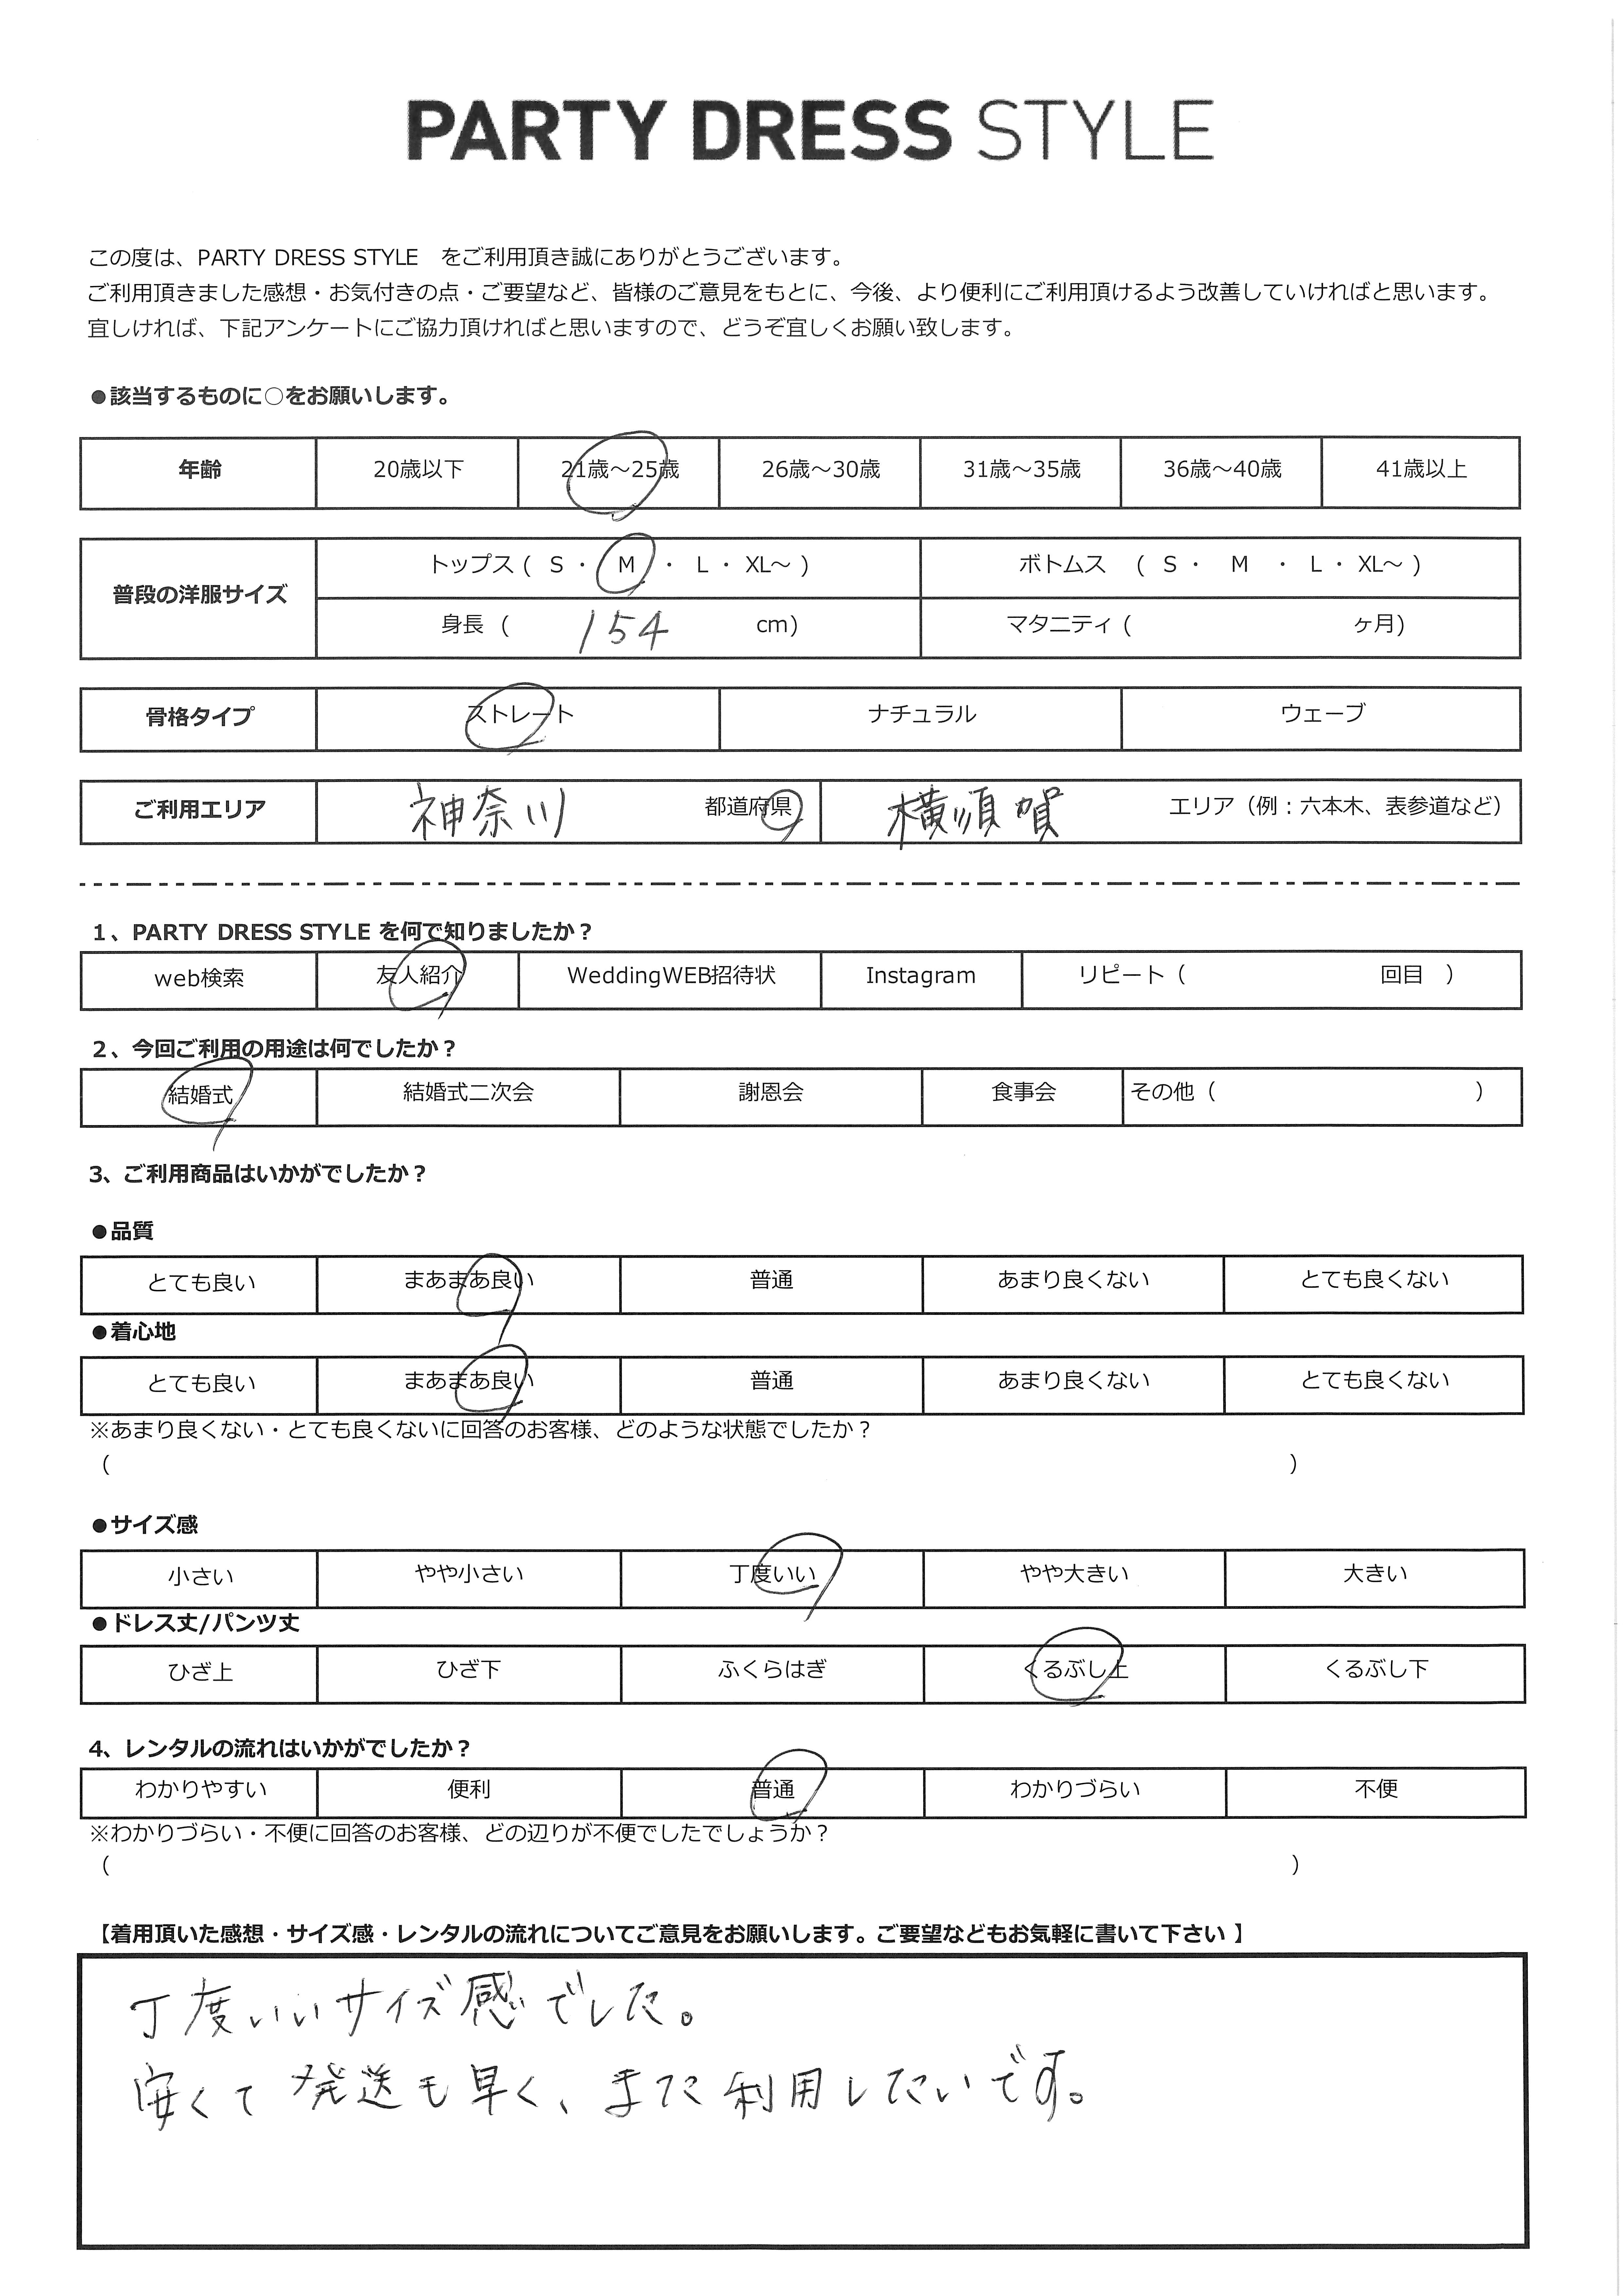 PARTY DRESS STYLE
この度は、PARTY DRESS STYLE　をご利用頂き誠にありがとうございます。
ご利用頂きました感想・お気付きの点・ご要望など、皆様のご意見をもとに、今後、より便利にご利用頂けるよう改善していければと思います。
宜しければ、下記アンケートにご協力頂ければと思いますので、どうぞ宜しくお願い致します。
●該当するものに○をお願いします。
年齢 20歳以下 21歳～25歳 26歳～30歳 31歳～35歳 36歳～40歳 41歳以上
普段の洋服サイズ
トップス ( S ・ M ・ L ・ XL～ ) ボトムス ( S ・ M ・ L ・ XL～ )
身長 ( 154 cm) マタニティ ( ヶ月)
骨格タイプ ストレート ナチュラル ウェーブ
ご利用エリア 神奈川 都道府県 横須賀 エリア（例：六本木、表参道など）
1、PARTY DRESS STYLE を何で知りましたか？
web検索 友人紹介 WeddingWEB招待状 Instagram リピート（ 回目 ）
2、今回ご利用の用途は何でしたか？
結婚式 結婚式二次会 謝恩会 食事会 その他（ ）
3、ご利用商品はいかがでしたか？
●品質
とても良い まあまあ良い 普通 あまり良くない とても良くない
●着心地
とても良い まあまあ良い 普通 あまり良くない とても良くない
※あまり良くない・とても良くないに回答のお客様、どのような状態でしたか？
（ ）
●サイズ感
小さい やや小さい 丁度いい やや大きい 大きい
●ドレス丈/パンツ丈
ひざ上 ひざ下 ふくらはぎ くるぶし上 くるぶし下
4、レンタルの流れはいかがでしたか？
わかりやすい 便利 普通 わかりづらい 不便
※わかりづらい・不便に回答のお客様、どの辺りが不便でしたでしょうか？
（ ）
【着用頂いた感想・サイズ感・レンタルの流れについてご意見をお願いします。ご要望などもお気軽に書いて下さい 】
丁度いいサイズ感でした。
安くて発送も早く、また利用したいです。